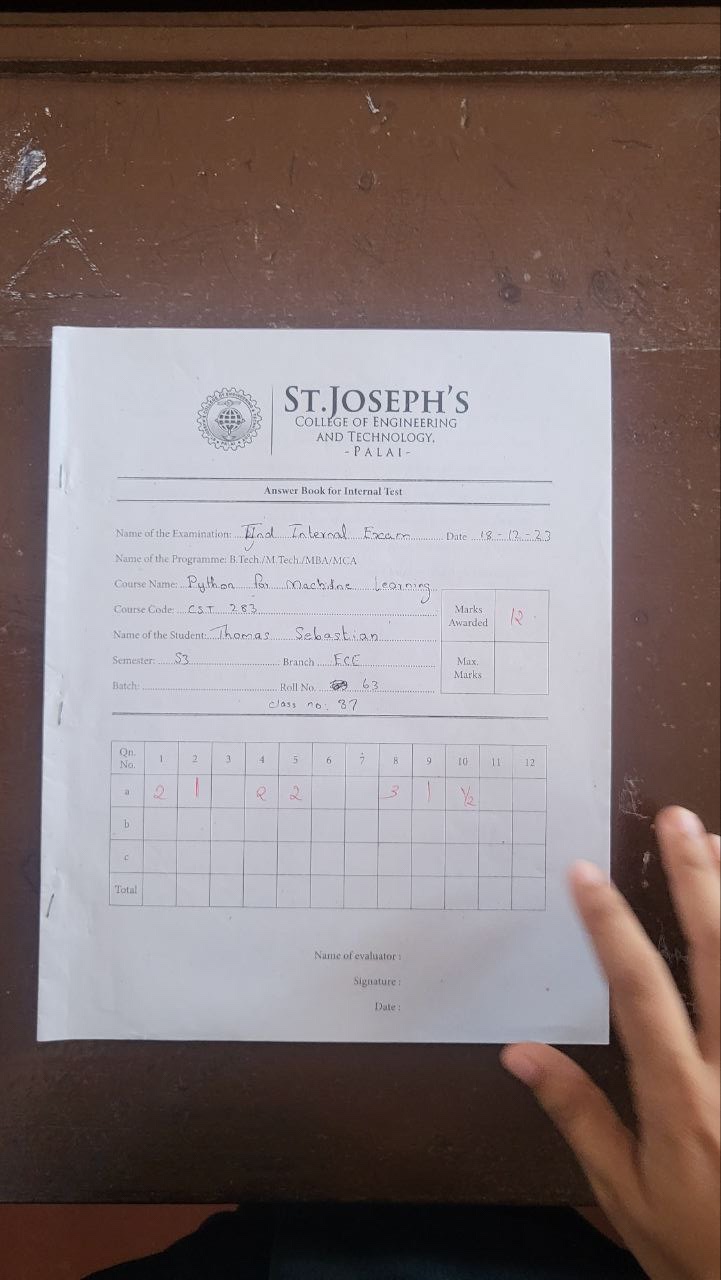 ST.JOSEPH'S
COLLEGE OF ENGINEERING
AND TECHNOLOGY,
-PALAI-
Answer Book for Internal Test
Name of the Examination: IInd Internal Exam Date 18-12-23
Name of the Programme: B.Tech./M.Tech./MBA/MCA
Course Name: Python for Machine Learning
Course Code: CST 283
Name of the Student: Thomas Sebastian
Semester: S3 Branch ECE
Batch: Roll No. 63
class no: 37
Marks Awarded 12
Max. Marks
Qn. No. 1 2 3 4 5 6 7 8 9 10 11 12
a 2 1 2 2 3 1 ½
b
c
Total
Name of evaluator :
Signature :
Date :